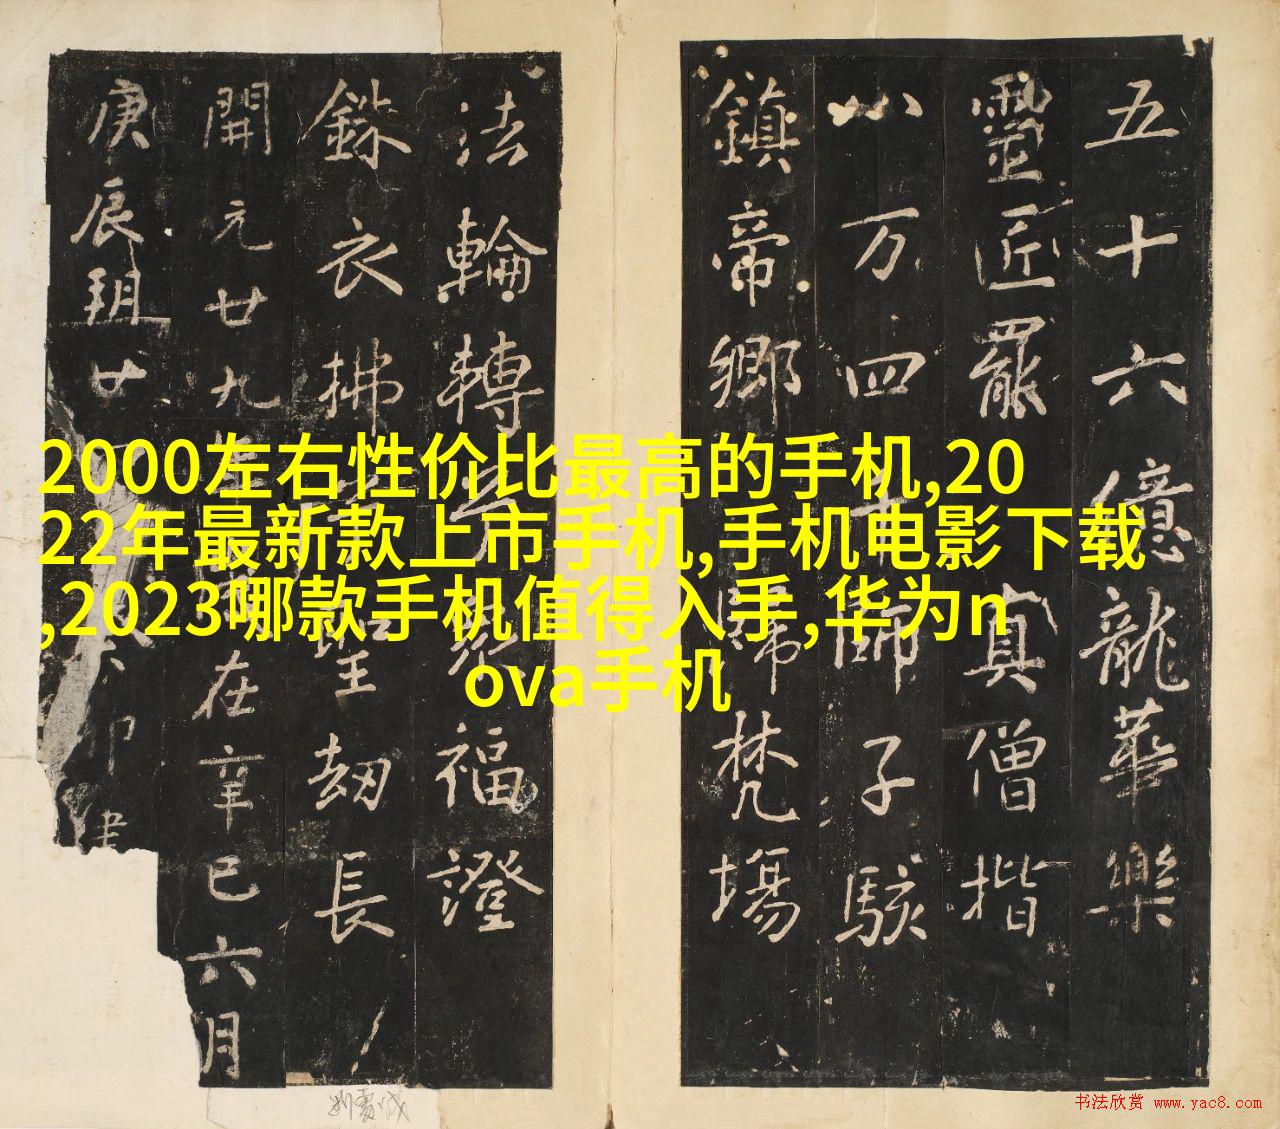 五十六億龍華樂
靈匠罷真僧揩
八万四師子駭
鎮帝鄉歸梵場
法輪轉福證
銖衣拂聖劫長
開元廿九在辛巳六月
庚辰玥廿
2000左右性价比最高的手机,20
22年最新款上市手机,手机电影下载
,2023哪款手机值得入手,华为n
ova手机
书法欣赏 www.yac8.com